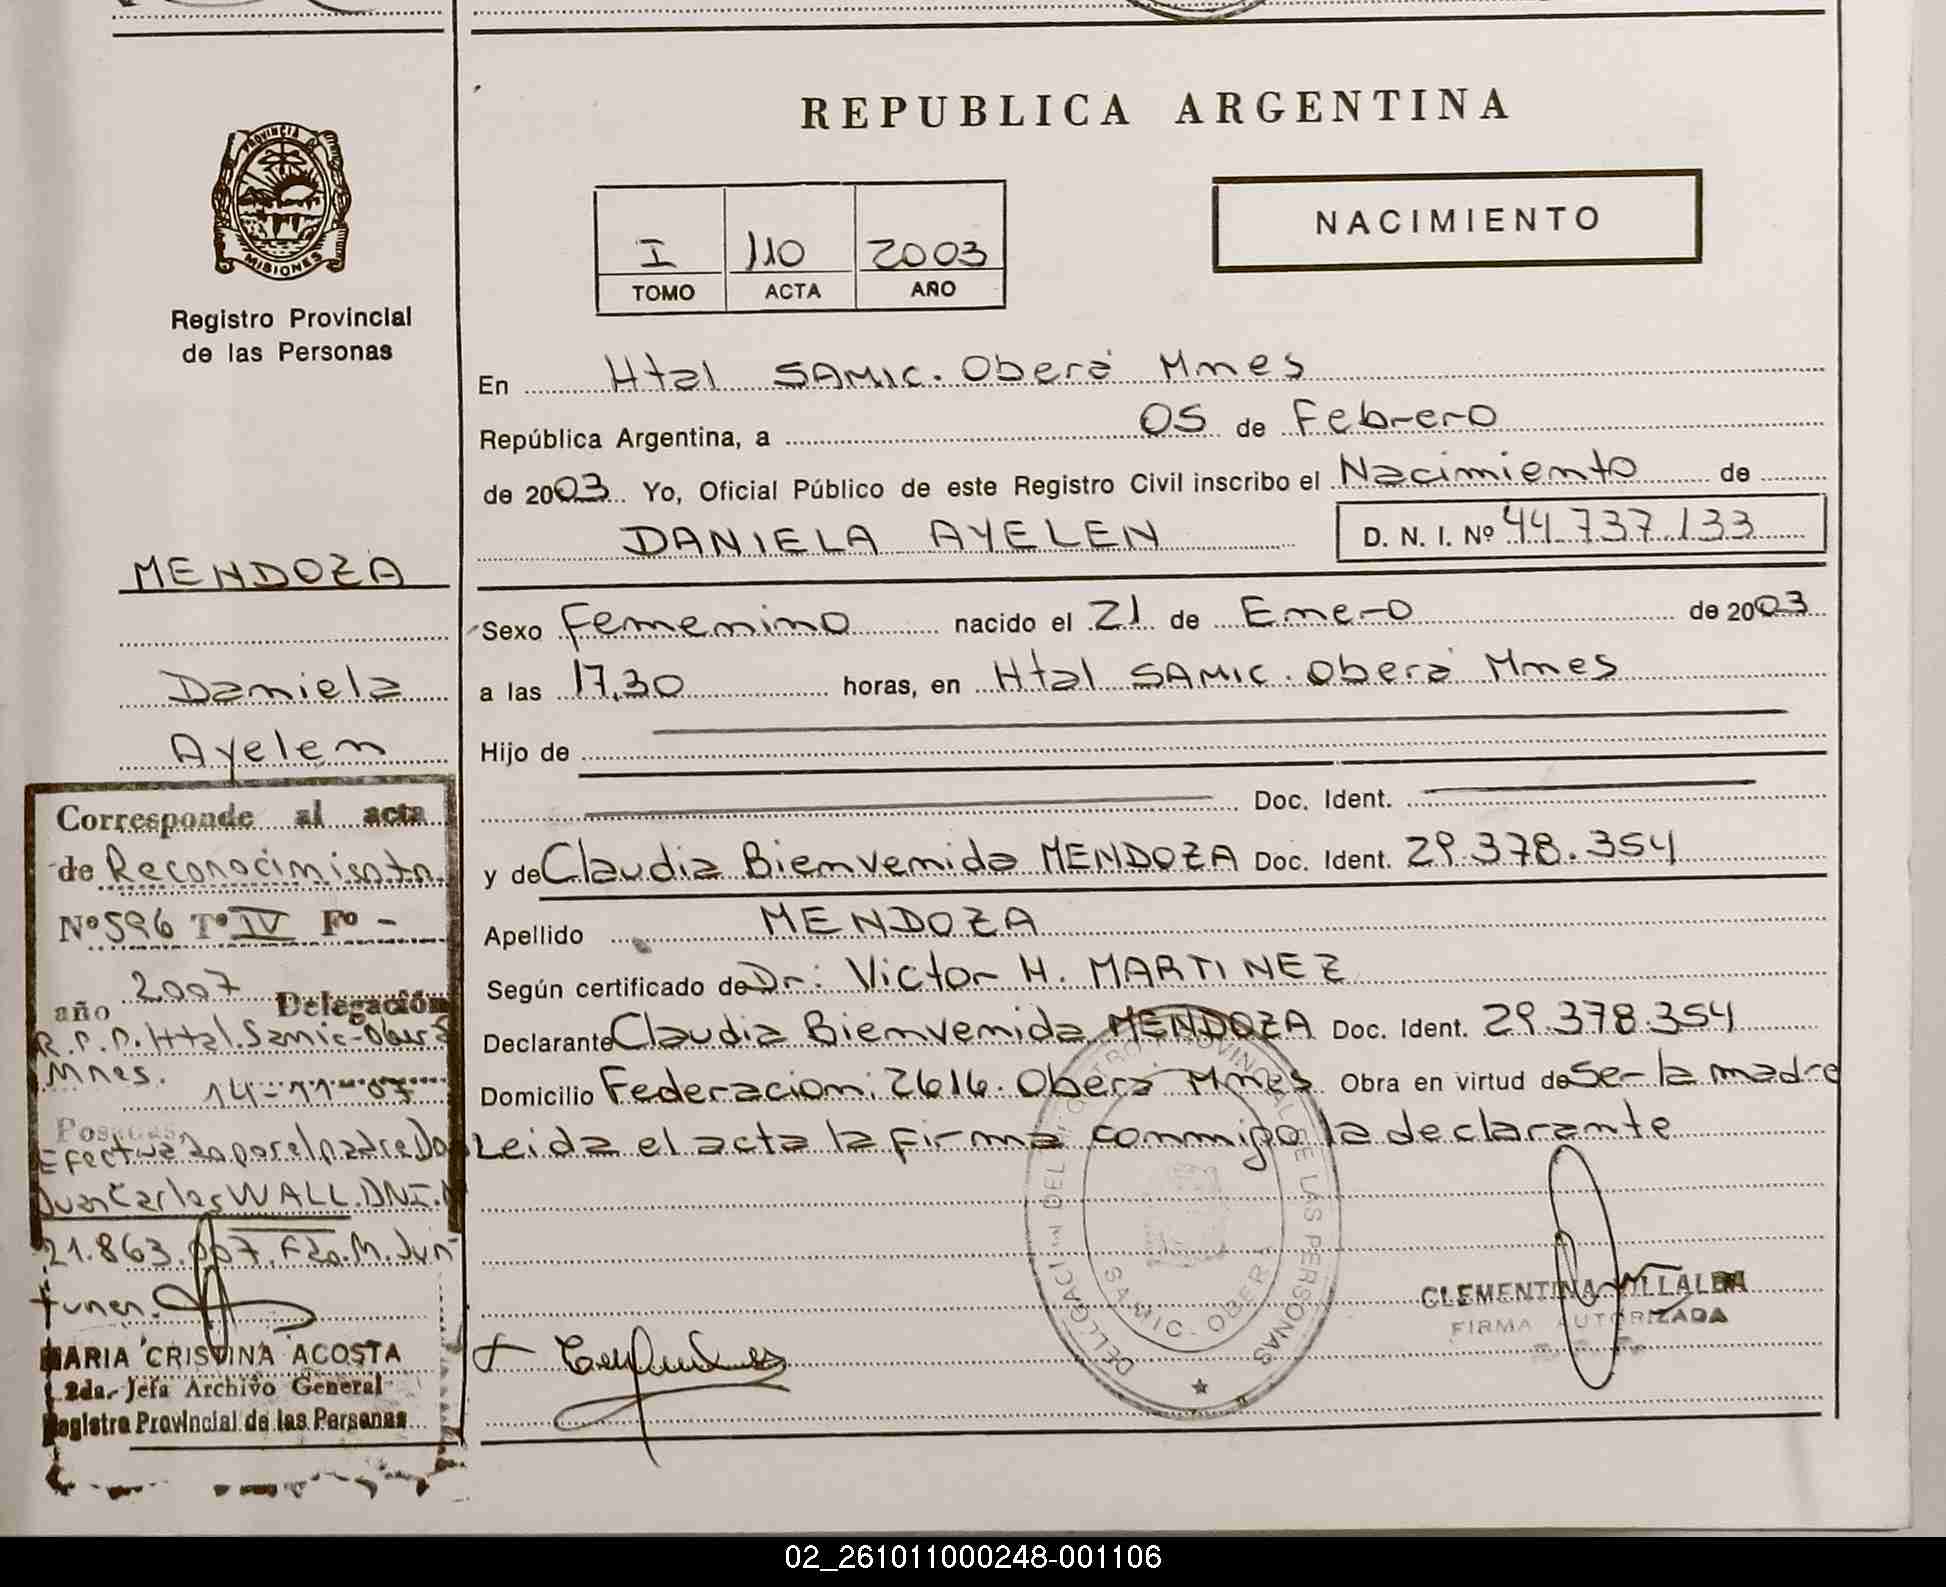 PROVINCIA DE
MISIONES
Registro Provincial
de las Personas
MENDOZA
Daniela
Ayelen
Corresponde al acta
de Reconocimiento
Nº 596 Tº IV Fº -
año 2007 Delegación
R.P.P. Htal. Samic-Oberá
Mnes. 14-11-07
Posadas,
Efectuada por el padre Do
Juan Carlos WALL. DNI. N
21.863.007. Fdo. M. Jun
tunen.
MARIA CRISTINA ACOSTA
2da. Jefa Archivo General
Registro Provincial de las Personas
REPUBLICA ARGENTINA
NACIMIENTO
I 110 2003
TOMO ACTA AÑO
En Htal SAMIC. Oberá Mnes
República Argentina, a 05 de Febrero
de 2003 Yo, Oficial Público de este Registro Civil inscribo el Nacimiento de
DANIELA AYELEN D. N. I. Nº 44.737.133
Sexo Femenino nacido el 21 de Enero de 2003
a las 17,30 horas, en Htal SAMIC. Oberá Mnes
Hijo de
Doc. Ident.
y de Claudia Bienvenida MENDOZA Doc. Ident. 29.378.354
Apellido MENDOZA
Según certificado de Dr: Victor H. MARTINEZ
Declarante Claudia Bienvenida MENDOZA Doc. Ident. 29.378.354
Domicilio Federacion: 2616. Oberá Mnes Obra en virtud de Ser la madre
Leida el acta la firma conmigo la declarante
REGISTRO PROVINCIAL DE LAS PERSONAS
SAMIC. OBERA
CLEMENTINA VILLALBA
FIRMA AUTORIZADA
02_261011000248-001106